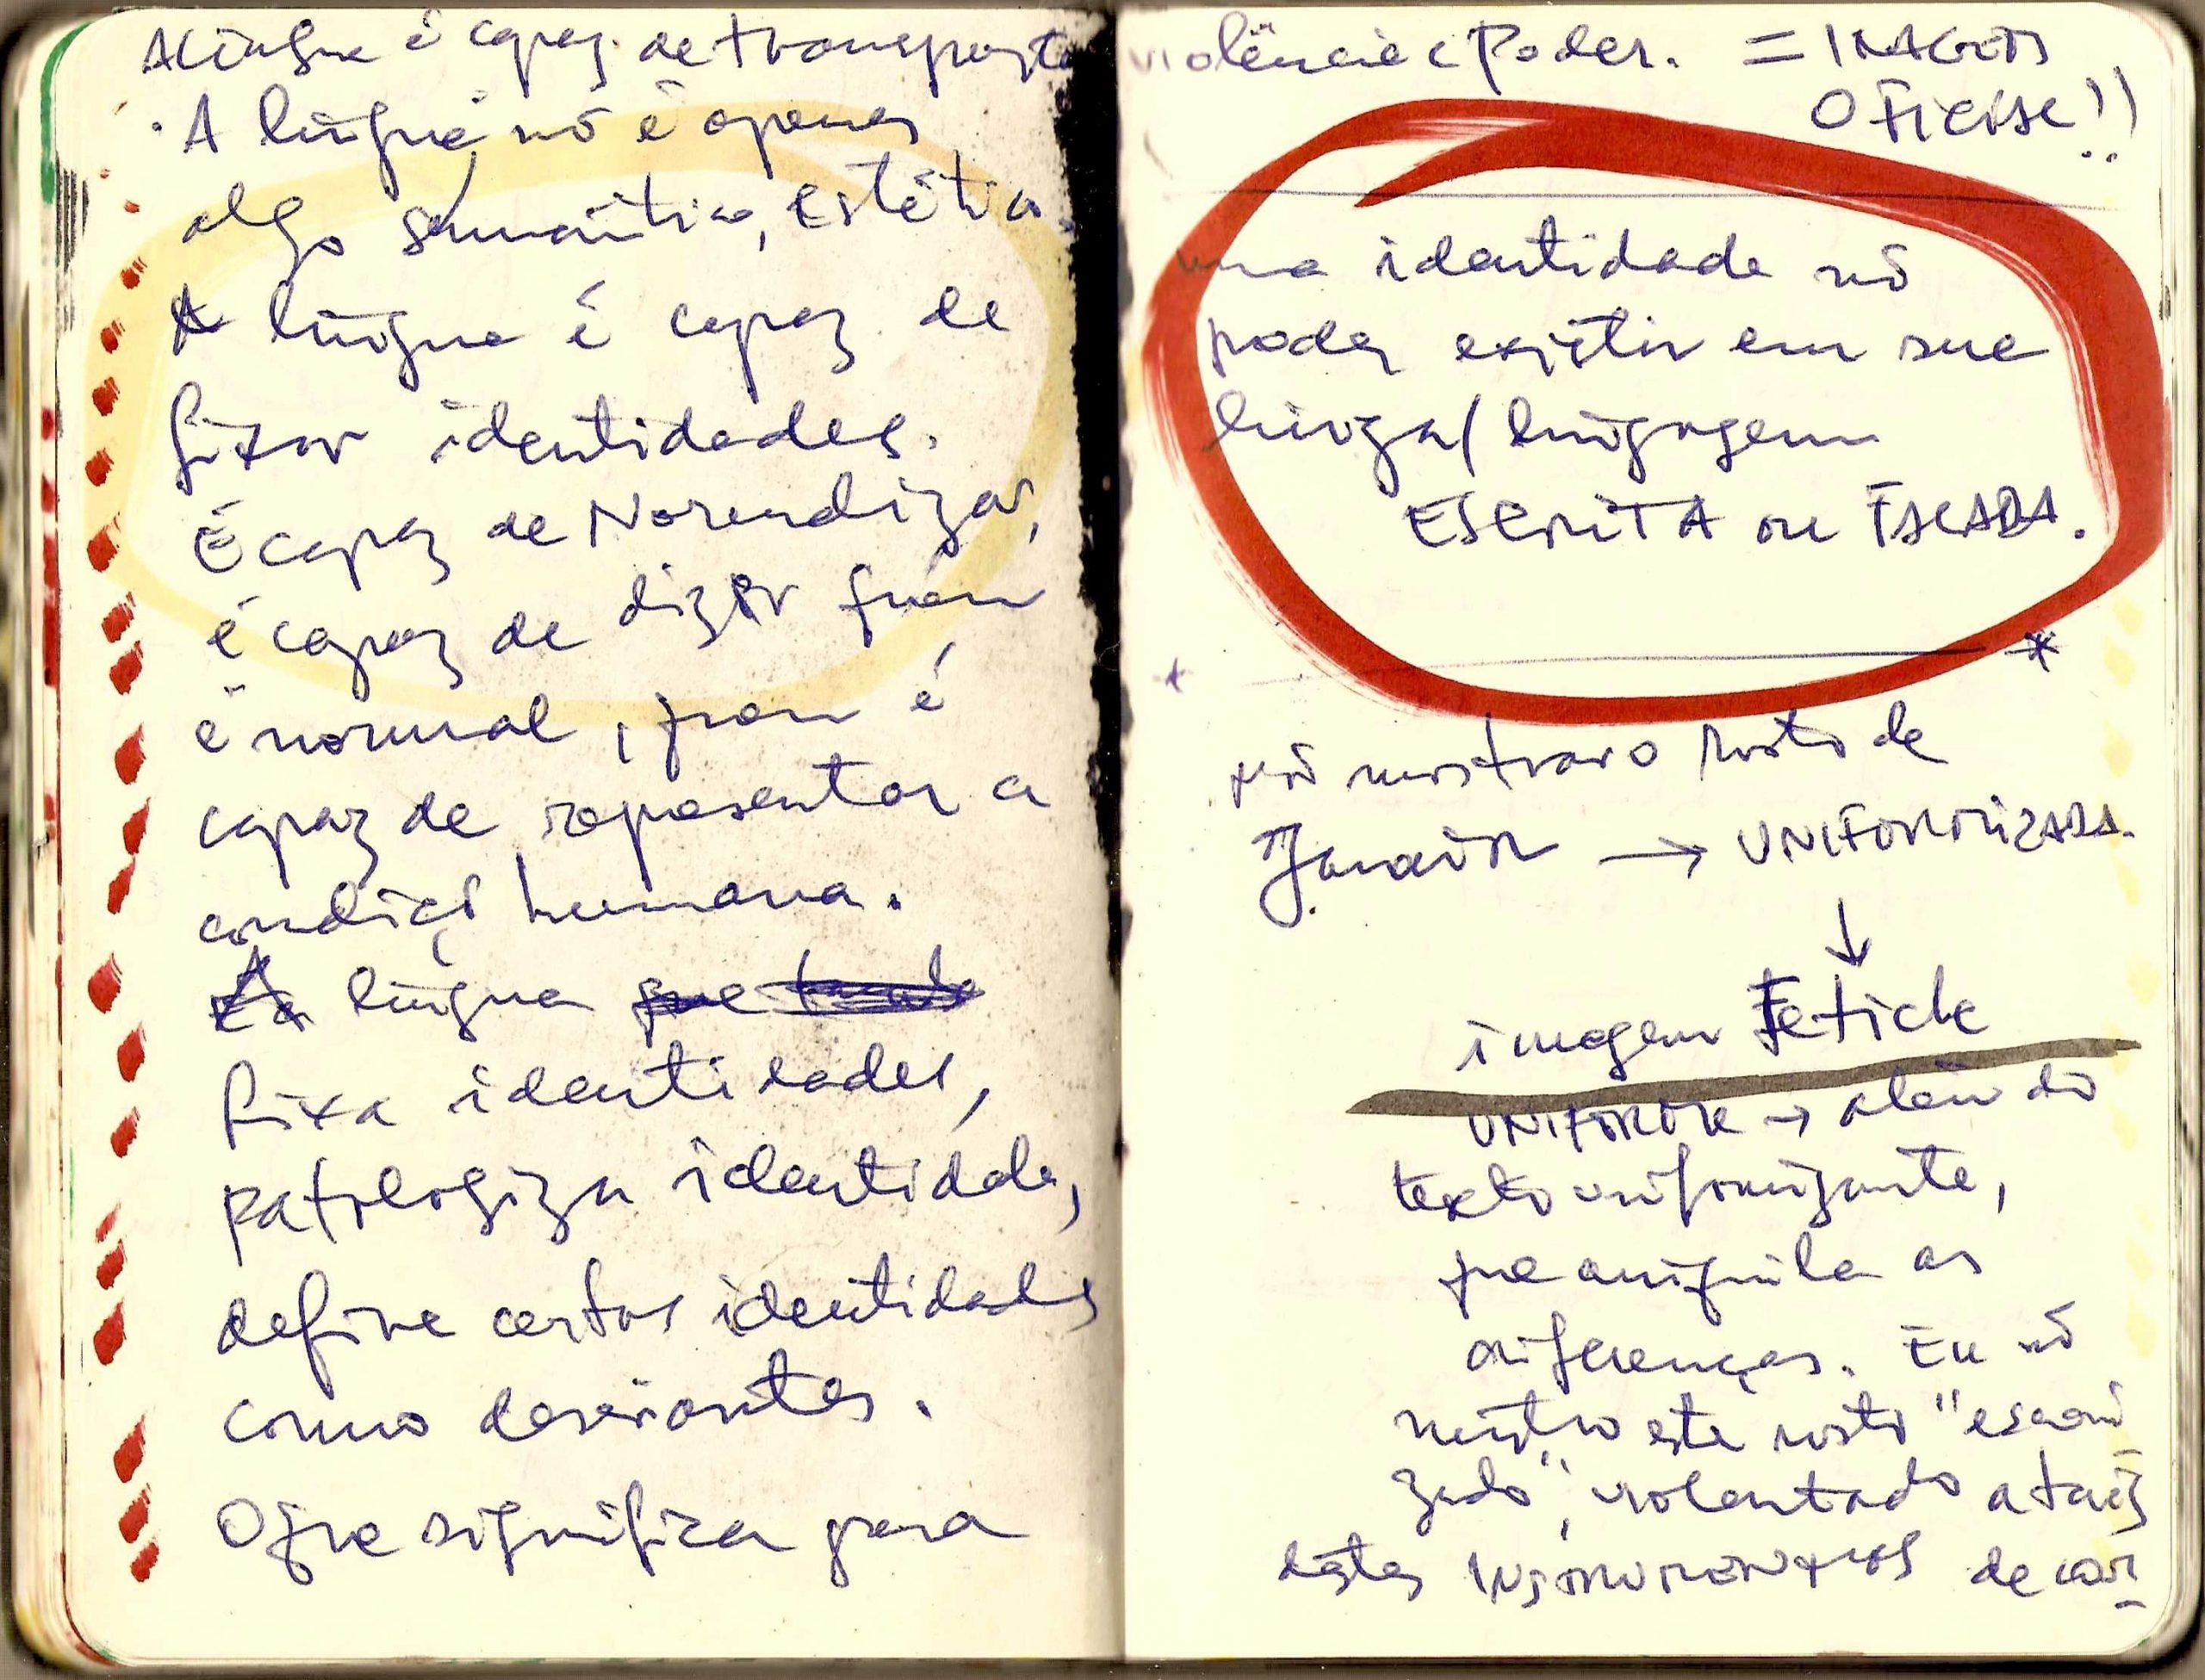 A língua é capaz de transportar
. A língua nõ é apenas
algo semântico, estético.
A língua é capaz de
fixar identidades.
É capaz de Normalizar,
é capaz de dizer quem
é normal, quem é
capaz de representar a
condição humana.
A língua
fixa identidades,
patologiza identidades,
define certas identidades
como desviantes.
O que significa para
violência e Poder. = IMAGEM
OFICIAL!!
uma identidade nõ
poder existir em sua
língua/linguagem
ESCRITA ou FALADA.
*
nõ mostrar o rosto de
→ UNIFORMIZADA.
↓
imagem Fetiche
UNIFORME → além do
texto uniformizante,
que aniquila as
diferenças. Eu nõ
mostro este rosto "escani
zado", violentado através
destes INSTRUMENTOS de